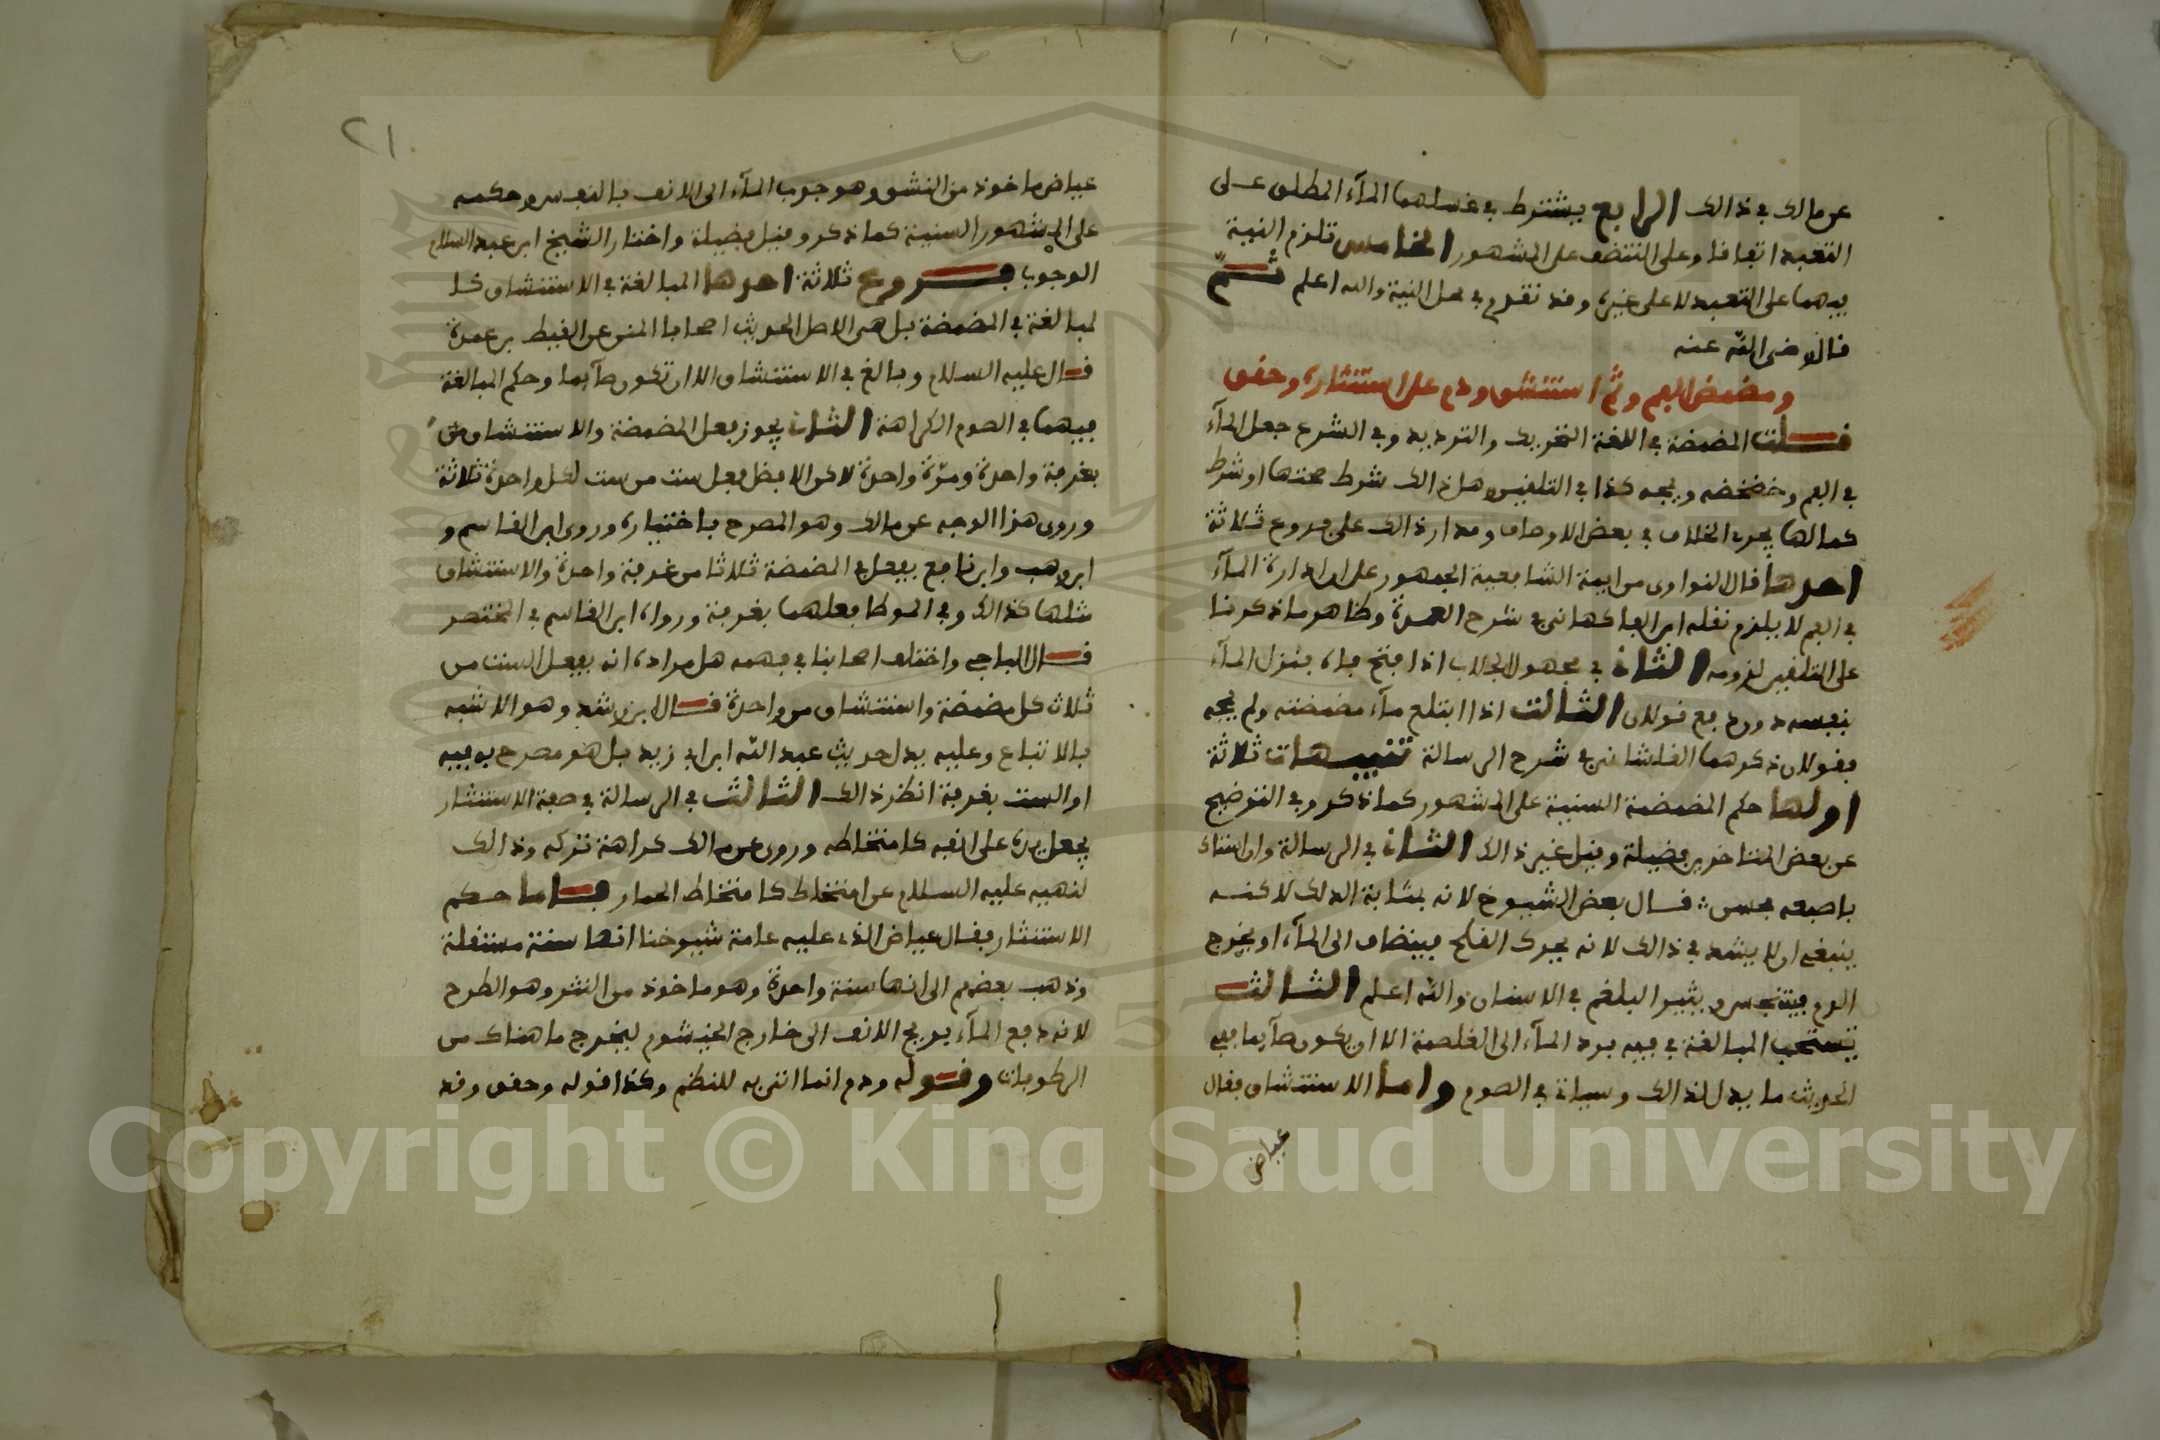 عن مالك في ذالك الرابع يشترط في غسلهما المآء المطلق على
التعبد اتفاقا وعلى التنضف على المشهور الخامس تلزم النية
فيهما على التعبد لا على غيره وقد تقدم في محل النية والله اعلم ثم
قال رضى الله عنه
ومضمض الفم وثم استنشق ودم على استنثاره وحقق
قلت المضمضة في اللغة التحريك والترديد وفي الشرع جعل المآء
في الفم وخضخضه ويجه كذا في التلقين وهل ذالك شرط صحتها او شرط
كمالها يجرى الخلاف في بعض الاوصاف ومدار ذالك على فروع ثلاثة
احدها قال النواوى من ايمة الشافعية الجمهور على ان ادارة المآء
في الفم لا يلزم نقله ابن الفاكهانى في شرح العمدة وظاهر ما ذكرنا
على التلقين لزومه الثانى في مجهول الجلاب اذا فتح فاه ينزل المآء
بنفسه دون دفع قولان الثالث اذا ابتلع مآء مضمضته ولم يجه
فقولان ذكرهما القلشانى في شرح الرسالة تنبيهات ثلاثة
اولها حكم المضمضة السنية على المشهور كما ذكر وفي التوضيح
عن بعض المتاخرين فضيلة وقيل غير ذالك الثانى في الرسالة وان استاك
باصبعه فحسن قال بعض الشيوخ لانه بمثابة الدلك لاكنه
ينبغى ان لا يشد في ذالك لانه يحرك القلح فينضاف الى المآء او يخرج
الدم فينجس ويثير البلغم في الاسنان والله اعلم الثالث
تستحب المبالغة في فيه برد المآء الى الغلصمة الا ان يكون صآيما ففي
الحديث ما يدل لذالك وسياتى في الصوم واما الاستنشاق فقال
عياض
٢١
عياض ماخوذ من النشق وهو جذب المآء الى الانف بالنفس وحكمه
على المشهور السنية كما ذكر وقيل فضيلة واختار الشيخ ابن عبد السلام
الوجوب فروع ثلاثة احدها المبالغة في الاستنشاق كا
لمبالغة في المضمضة بل هى الاصل لحديث اصحاب السنن عن لقيط بن عمرة
قال عليه السلام وبالغ في الاستنشاق الا ان تكون صآيما وحكم المبالغة
فيهما في الصوم الكراهة الثانى يجوز فعل المضمضة والاستنشاق
بغرفة واحدة ومرة واحدة لاكن الافضل فعل ست من ست لكل واحدة ثلاثة
وروى هذا الوجه عن مالك وهو المصرح باختياره وروى ابن القاسم و
ابن وهب وابن نافع يفعل في المضمضة ثلاثا من غرفة واحدة والاستنشاق
مثلها كذالك وفي الموطا فعلهما بغرفة ورواه ابن القاسم في المختصر
قال الباجى واختلف اصحابنا في فهمه هل مراده انه يفعل الست من
ثلاث كل مضمضة واستنشاق من واحدة قال ابن رشد وهو الاشبه
بالاتباع وعليه يدل حديث عبد الله ابن زيد بل هو مصرح به فيه
او الست بغرفة انظر ذالك الثالث في الرسالة في صفة الاستنثار
يجعل يده على انفه كامتخاطه وروى عن مالك كراهة تركه وذالك
لنهيه عليه السلام عن امتخاط كامتخاط الحمار فاما حكم
الاستنثار فقال عياض الذى عليه عامة شيوخنا انها سنة مستقلة
وذهب بعضهم الى انها سنة واحدة وهو ماخوذ من النثر وهو الطرح
لانه دفع المآء بريح الانف الى خارج الخيشوم ليخرج ما هناك من
الرطوبات وقوله ودم انما اتى به للنظم وكذا قوله وحقق وقد